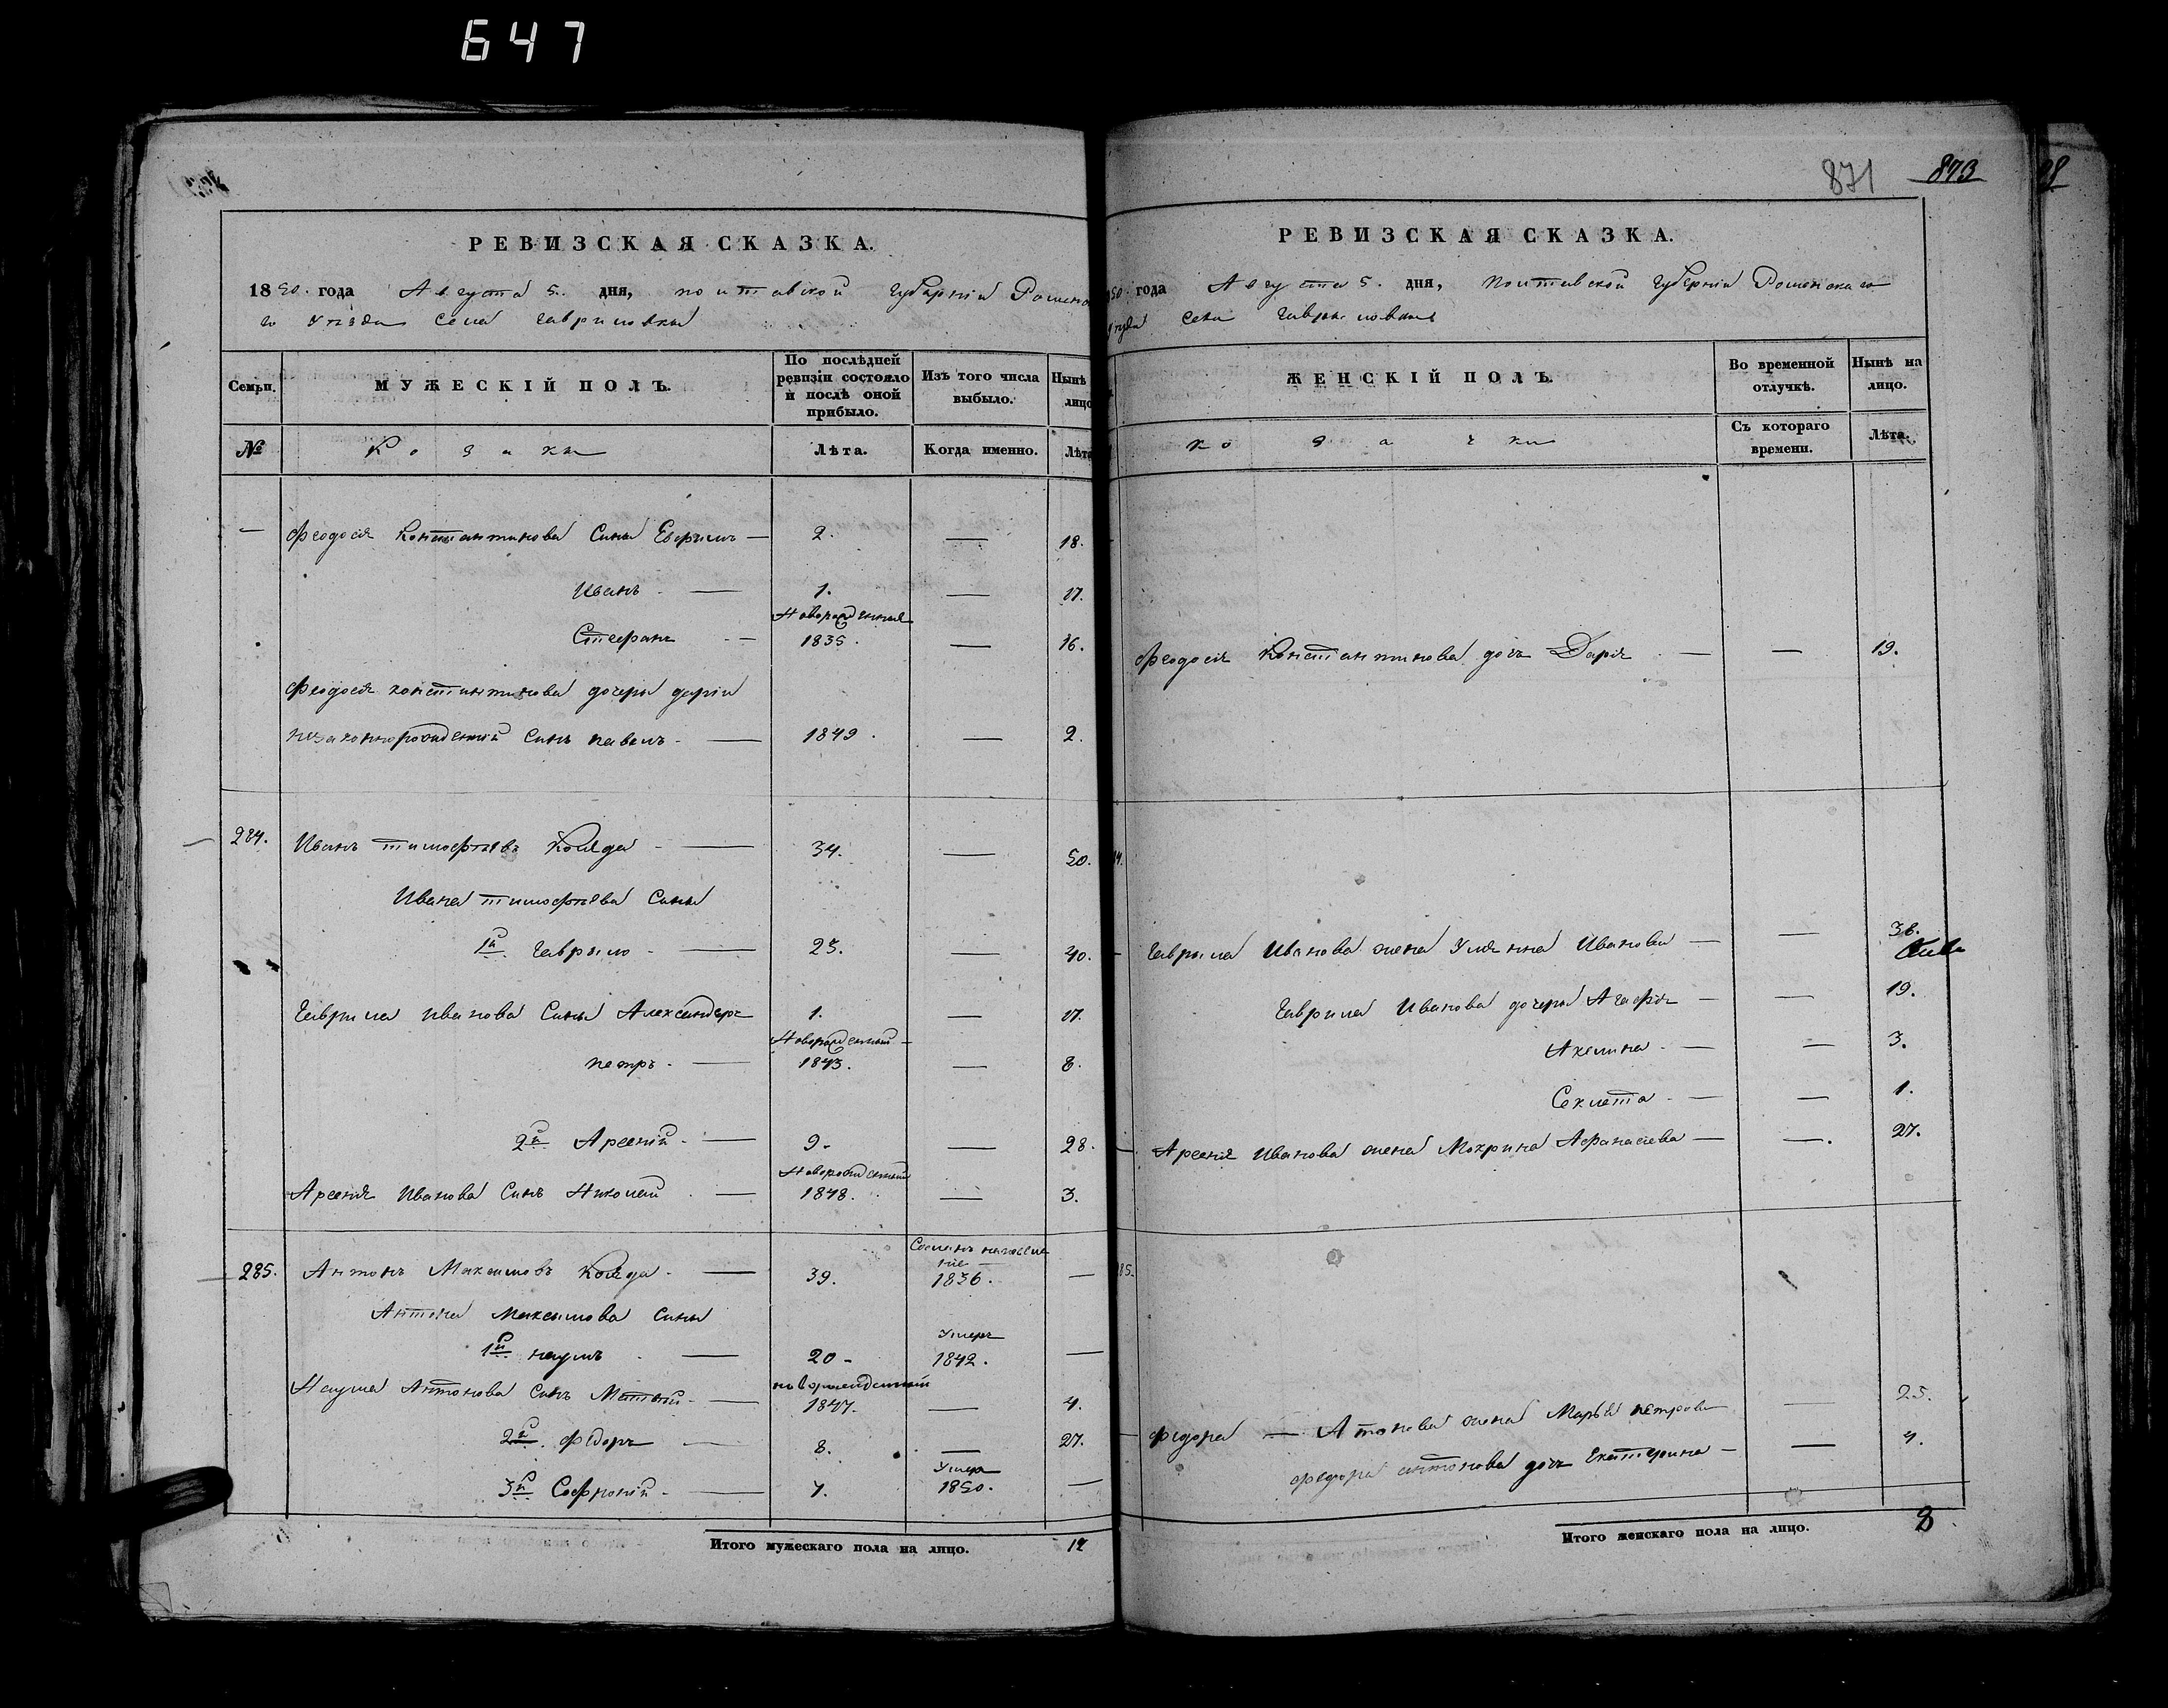 647
871 873
РЕВИЗСКАЯ СКАЗКА.
1850. года Августа 5. дня, полтавской Губерніи Роменска
го уѣзда села Гавриловки
Семьи.
МУЖЕСКІЙ ПОЛЪ.
По послѣдней ревизіи состояло и послѣ оной прибыло.
Изъ того числа выбыло.
Нынѣ лицо
№
Козаки
Лѣта.
Когда именно.
Лѣта
Феодосія Константинова Сины Ефримъ — 2. — 18.
Иванъ — 1. — 17.
Новорожденный
Стефанъ — 1835. — 16.
Феодосія константинова дочери даріи
незаконнорожденній Синъ павелъ — 1849. — 2.
284. Иванъ тимофѣевъ Коляда — 34. — 50.
Ивана тимофѣева Сины
1й Гаврыло — 23. — 40.
Гаврила иванова Сины Александеръ 1. — 17.
Новорожденный
петръ — 1843. — 8.
2й Арсеній — 9. — 28.
Новорожденный
Арсенія Иванова Синъ Николай — 1848. — 3.
285. Антонъ Максимовъ Коляда — 39. Сосланъ на поселе
ніе
1836. —
Антона Максимова Сины
1й наумъ — 20 — Умеръ 1842. —
Наума Антонова Синъ Матвѣй — новорожденный 1847. — 4.
2й Фёдоръ — 8. — 27.
3й Софроній — 7. Умеръ 1850. —
Итого мужескаго пола на лицо. 12
РЕВИЗСКАЯ СКАЗКА.
50. года Августа 5. дня, полтавской губерніи Роменскаго
уѣзда села Гавриловки
ЖЕНСКІЙ ПОЛЪ.
Во временной отлучкѣ.
Нынѣ на лицо.
козачки
Съ котораго времени.
Лѣта.
Феодосія Константинова дочъ Дарія — — 19.
Гаврила Иванова жена Ульянна Иванова — — 38.
Гаврила Иванова дочери Агафія — — 19.
Акелина — — 3.
Секлета — — 1.
Арсенія Иванова жена Мокрина Афанасіева — — 27.
85.
Федора — Антонова жена Марья петрова — 25.
Федора антонова дочъ Екатерина — — 4.
Итого женскаго пола на лицо. 8